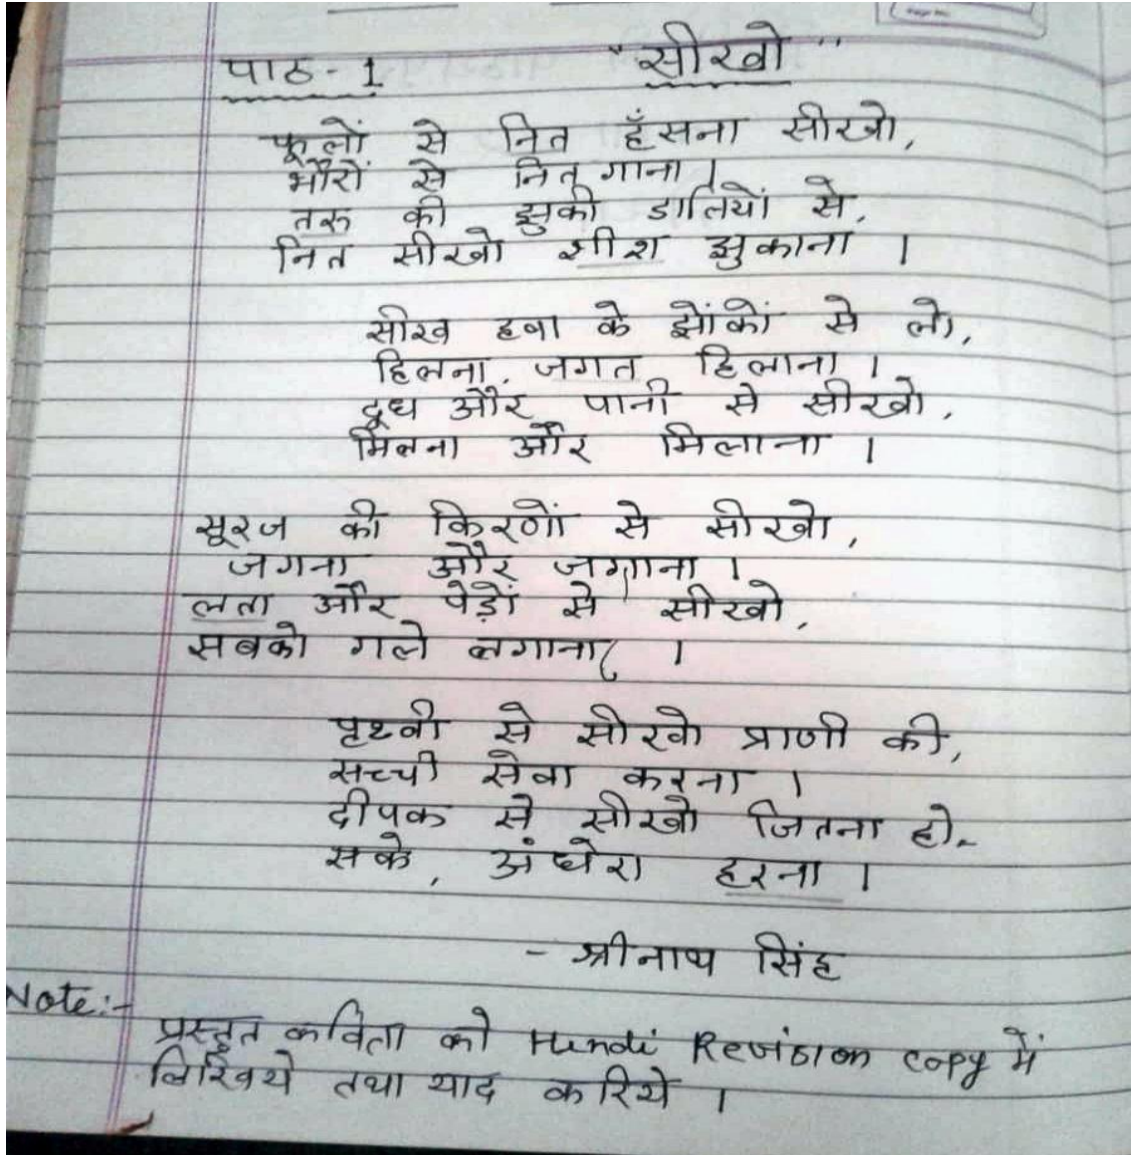 पाठ - 1 "सीखो"
फूलों से नित हँसना सीखो,
भौरों से नित गाना।
तरु की झुकी डालियों से,
नित सीखो शीश झुकाना ।
सीख हवा के झोंकों से लो,
हिलना, जगत हिलाना ।
दूध और पानी से सीखो,
मिलना और मिलाना ।
सूरज की किरणों से सीखो,
जगना और जगाना ।
लता और पेड़ों से सीखो,
सबको गले लगाना ।
पृथ्वी से सीखो प्राणी की,
सच्ची सेवा करना ।
दीपक से सीखो जितना हो,
सके, अंधेरा हरना ।
- श्रीनाथ सिंह
Note:-
प्रस्तुत कविता को Hindi Revision copy में
लिखिये तथा याद करिये ।